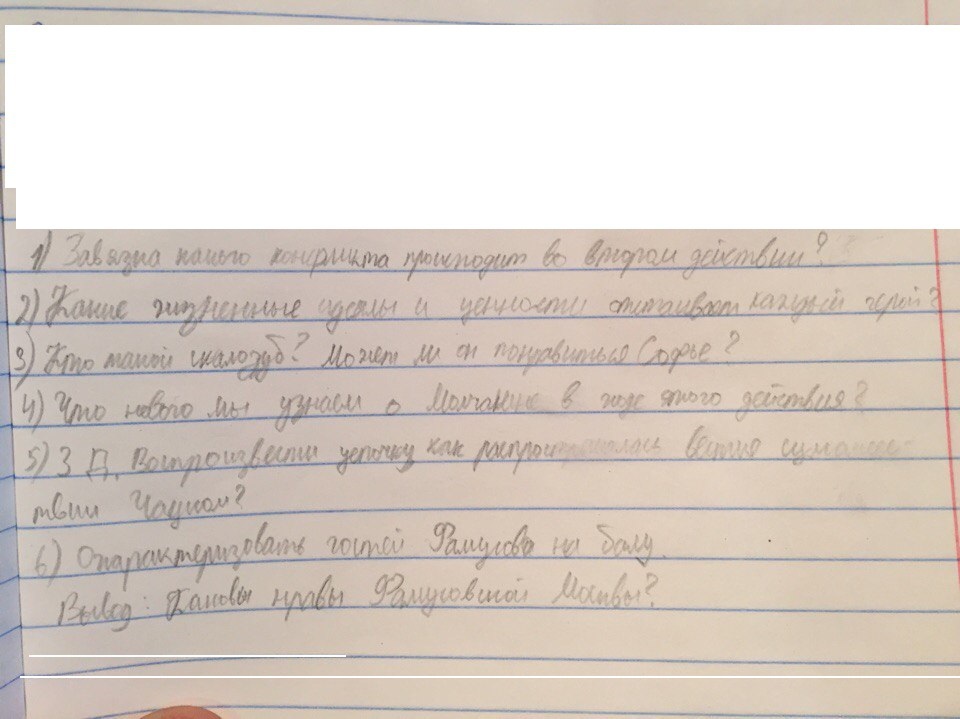 1) Завязка какого конфликта происходит во втором действии?
2) Какие жизненные идеалы и ценности отстаивает каждый герой?
3) Кто такой скалозуб? Может ли он понравиться Софье?
4) Что нового мы узнаем о Молчалине в ходе этого действия?
5) 3 Д. Воспроизвести цепочку как распространялась
твии Чацком?
6) Охарактеризовать гостей Фамусова на балу.
Вывод: Каковы нравы Фамусовской Москвы?